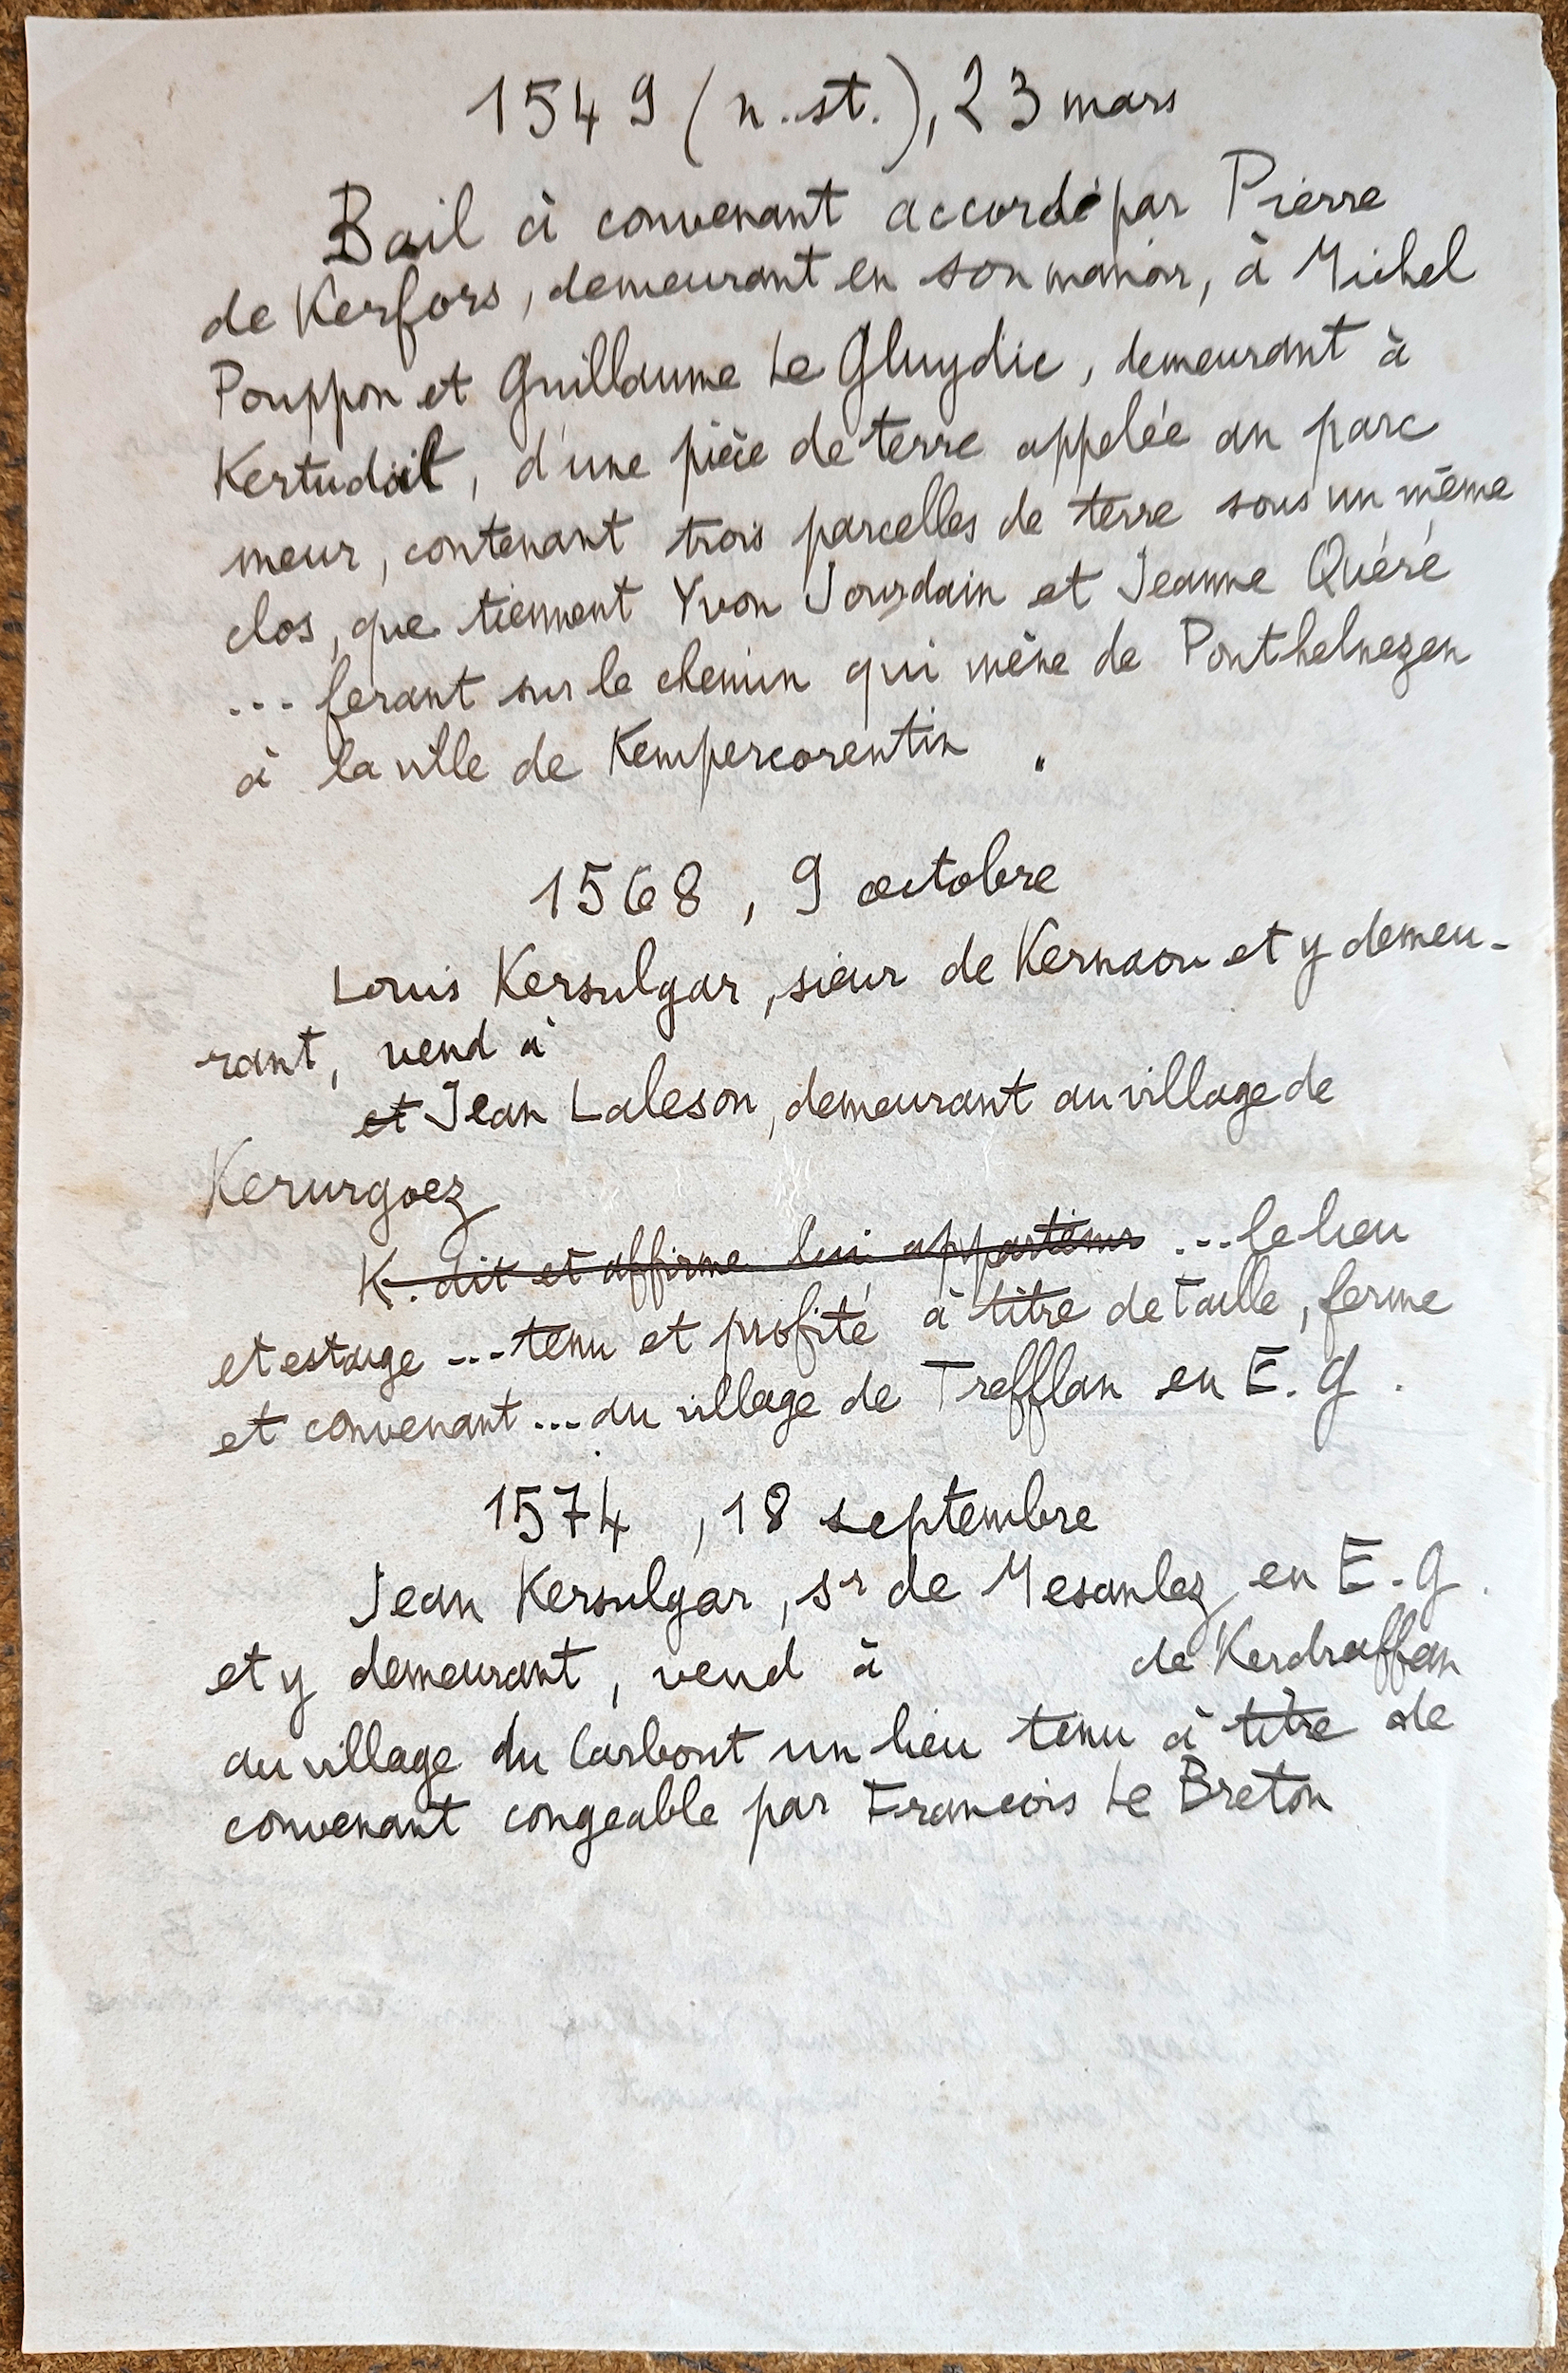 1549 (n.st.), 23 mars
Bail à convenant accordé par Pierre
de Kerfors, demeurant en son manoir, à Michel
Pouppon et Guillaume Le Gluydic, demeurant à
Kertudoil, d'une pièce de terre appelée an parc
meur, contenant trois parcelles de terre sous un même
clos, que tiennent Yvon Jourdain et Jeanne Quéré
... ferant sur le chemin qui mène de Ponthelnezen
à la ville de Kempercorentin .
1568, 9 octobre
Louis Kersulgar, sieur de Kernaou et y demeu-
rant, vend à
et Jean Laleson, demeurant au village de
Kerurgoez
K. dit et affirme lui appartenir ... le lieu
et estaige ... tenu et profité à titre de taille, ferme
et convenant ... au village de Trefflan en E. G.
1574, 18 septembre
Jean Kersulgar, sr de Mesanlez en E. G.
et y demeurant, vend à de Kerdraffan
au village du Carbont un lieu tenu à titre de
convenant congeable par Francois Le Breton